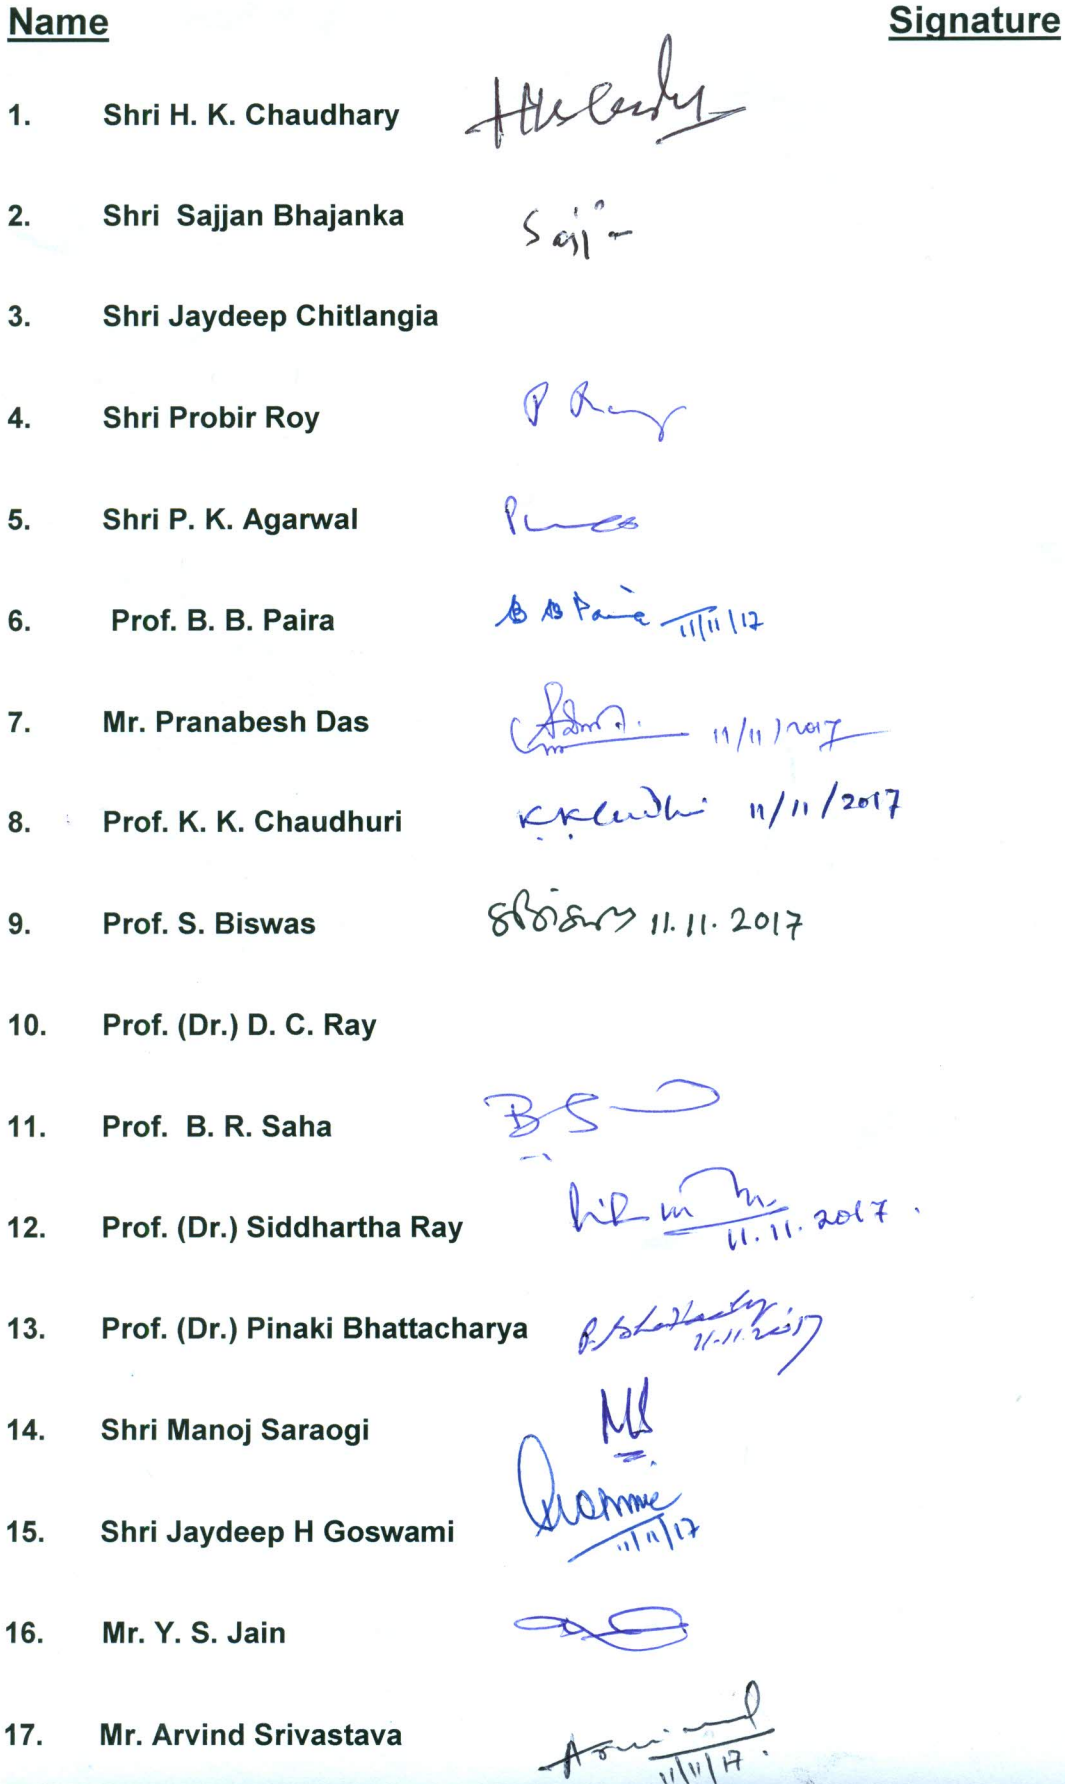 Name Signature
1. Shri H. K. Chaudhary
2. Shri Sajjan Bhajanka
3. Shri Jaydeep Chitlangia
4. Shri Probir Roy P Roy
5. Shri P. K. Agarwal
6. Prof. B. B. Paira B B Paira 11/11/17
7. Mr. Pranabesh Das 11/11/2017
8. Prof. K. K. Chaudhuri K. K. 11/11/2017
9. Prof. S. Biswas 11.11.2017
10. Prof. (Dr.) D. C. Ray
11. Prof. B. R. Saha
12. Prof. (Dr.) Siddhartha Ray 11.11.2017
13. Prof. (Dr.) Pinaki Bhattacharya P. Bhattacharya 11.11.2017
14. Shri Manoj Saraogi MS
15. Shri Jaydeep H Goswami 11/11/17
16. Mr. Y. S. Jain
17. Mr. Arvind Srivastava Arvind 11/11/17